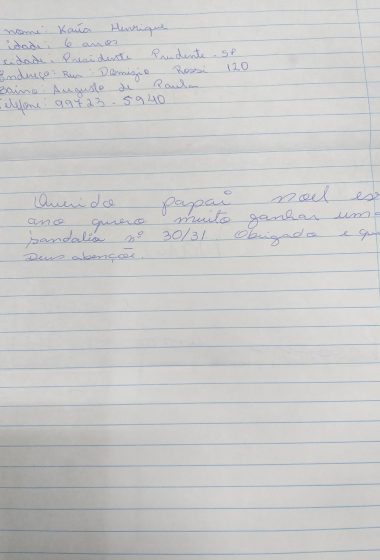 nome: Kaio Henrique
idade: 6 anos
cidade: Presidente Prudente. SP
Endereço: Rua: Domizio Rossi 120
Bairro: Augusto de Paula
Telefone: 99723-5940
Querido papai noel es
ano quero muito ganhar um
sandalia nº 30/31. Obrigado e q
Deus abençoe.